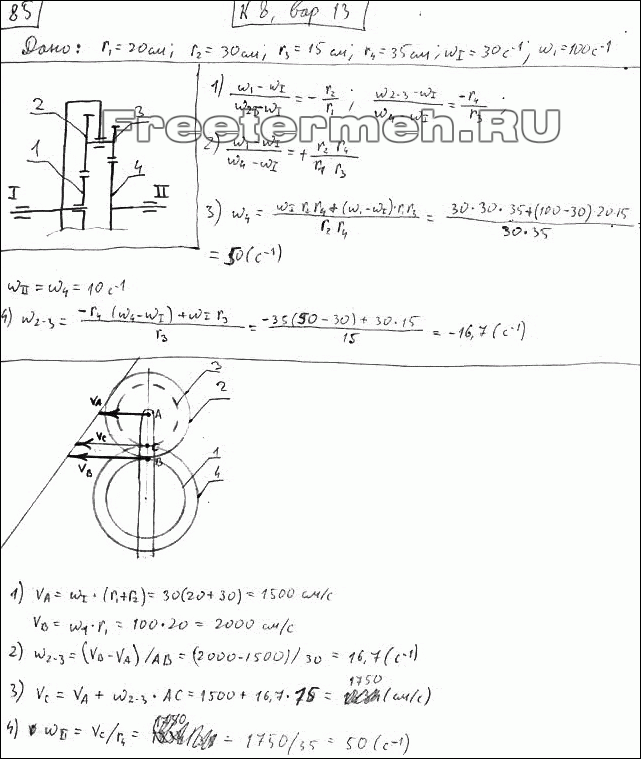 85
К 8, вар 13
Дано: r₁=20см; r₂=30см; r₃=15см; r₄=35см; ωI=30с⁻¹; ω₁=100с⁻¹
Freetermeh.RU
2 3
1 4
I II
1) (ω₁-ωI)/(ω₂₋₃-ωI) = -r₂/r₁; (ω₂₋₃-ωI)/(ω₄-ωI) = -r₄/r₃;
2) (ω₁-ωI)/(ω₄-ωI) = + r₂ r₄/r₁ r₃
3) ω₄ = (ωI r₂ r₄ + (ω₁-ωI)·r₁ r₃)/(r₂ r₄) = (30·30·35+(100-30)·20·15)/(30·35)
= 50(с⁻¹)
ωII = ω₄ = 10 с⁻¹
4) ω₂₋₃ = (-r₄ (ω₄-ωI) + ωI r₃)/r₃ = (-35(50-30) + 30·15)/15 = -16,7 (с⁻¹)
3
2
VA A
VC C
VB B
1
4
1) VA = ωI · (r₁+r₂) = 30(20+30) = 1500 см/с
VB = ω₁ · r₁ = 100·20 = 2000 см/с
2) ω₂₋₃ = (VB-VA)/AB = (2000-1500)/30 = 16,7 (с⁻¹)
3) VC = VA + ω₂₋₃ · AC = 1500 + 16,7·15 = 1750 (см/с)
4) ωII = VC/r₄ = 1750 = 1750/35 = 50 (с⁻¹)